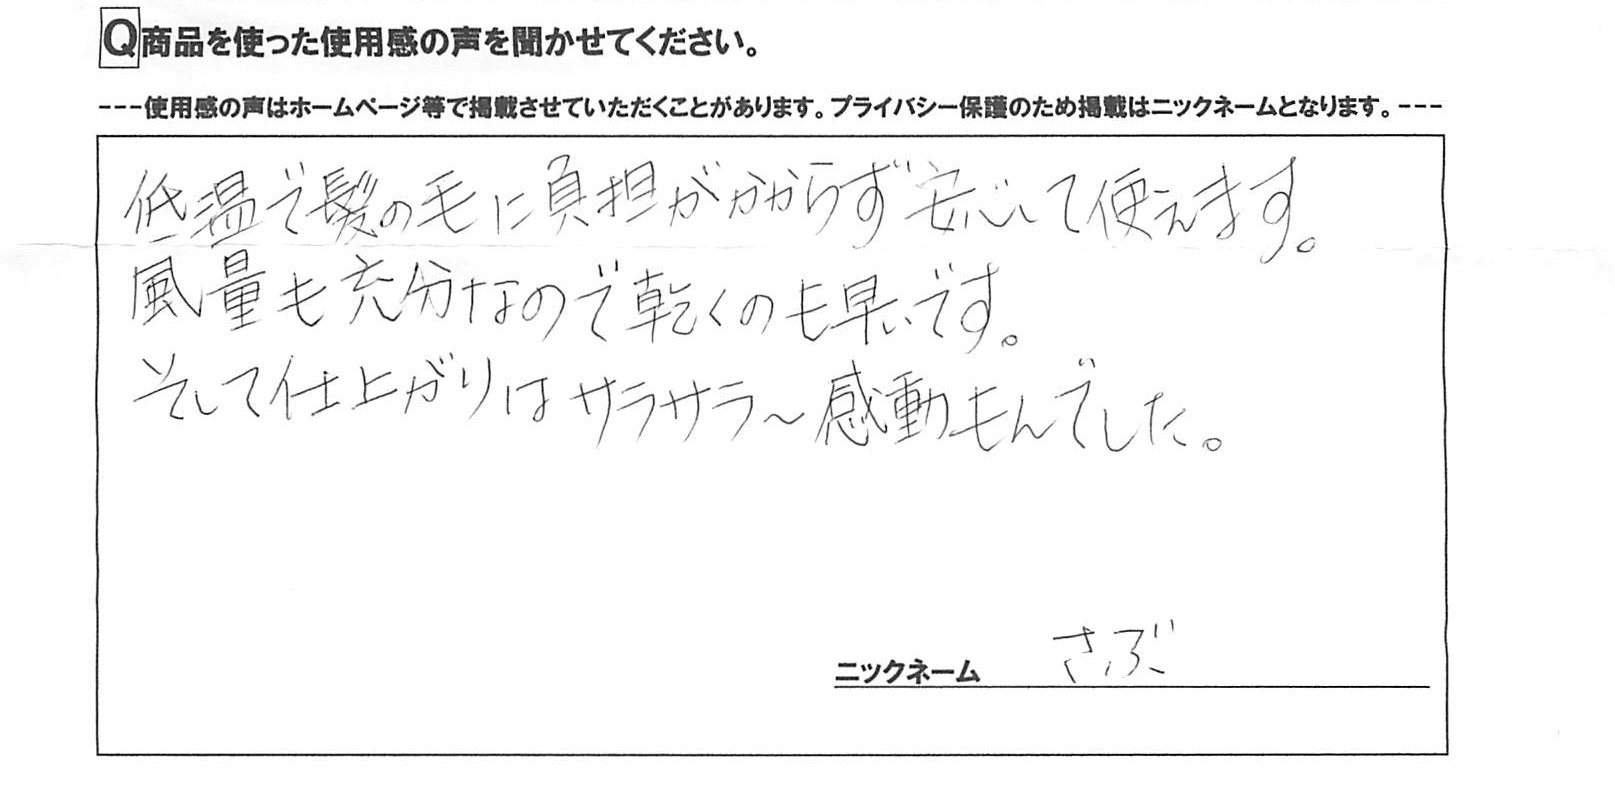 Q商品を使った使用感の声を聞かせてください。
---使用感の声はホームページ等で掲載させていただくことがあります。プライバシー保護のため掲載はニックネームとなります。---
低温で髪の毛に負担がかからず安心して使えます。
風量も充分なので乾くのも早いです。
そして仕上がりはサラサラ～感動もんでした。
ニックネーム さぶ